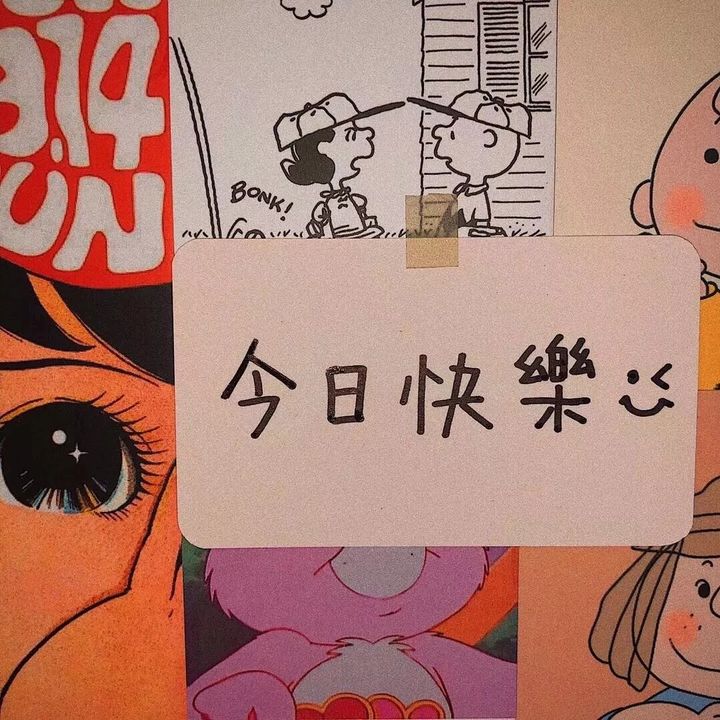 3.14
UN
BONK!
今日快樂